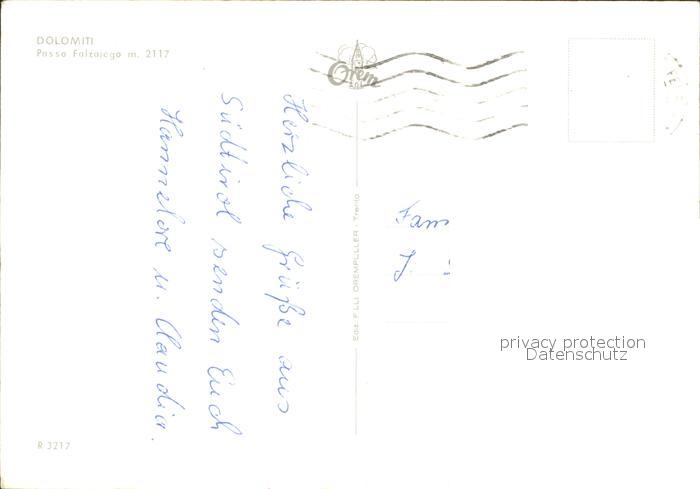 DOLOMITI
Passo Falzarego m. 2117
Herzliche Grüße aus
Südtirol senden Euch
Hannelore u. Claudia.
Ediz. F.LLI OREMPULLER - Trento
Fam
J
privacy protection
Datenschutz
R 3217